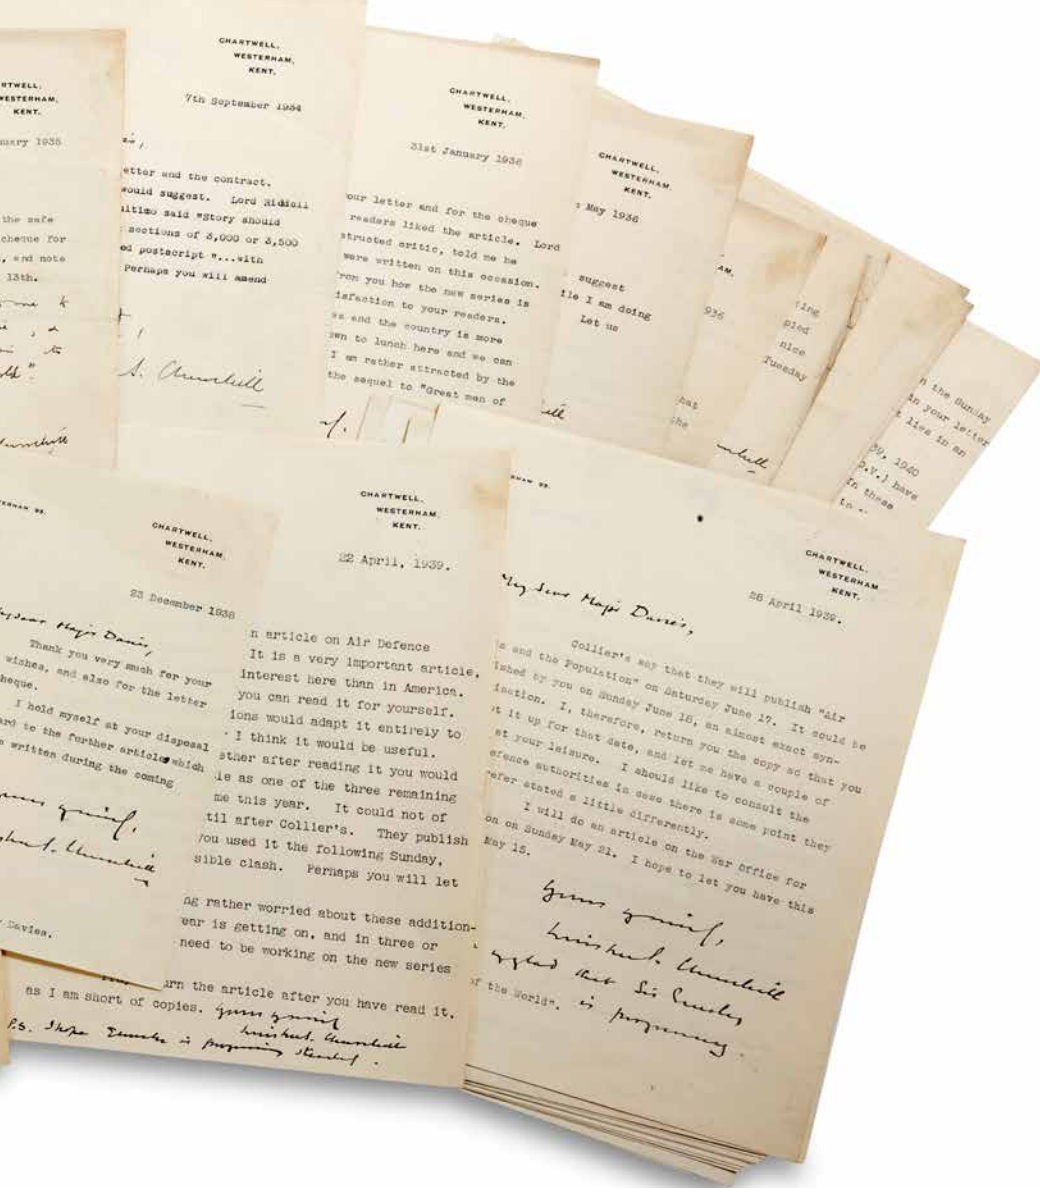 RTWELL,
WESTERHAM,
KENT.
nuary 1935
the safe
cheque for
, and note
13th.
CHARTWELL,
WESTERHAM,
KENT.
7th September 1934
etter and the contract.
would suggest. Lord Riddell
ultimo said "Story should
sections of 3,000 or 3,500
ed postscript "...with
Perhaps you will amend
S. Churchill
CHARTWELL,
WESTERHAM,
KENT.
31st January 1936
your letter and for the cheque
readers liked the article. Lord
structed critic, told me he
were written on this occasion.
from you how the new series is
isfaction to your readers.
and the country is more
own to lunch here and we can
I am rather attracted by the
the sequel to "Great men of
CHARTWELL,
WESTERHAM,
KENT.
May 1936
suggest
ile I am doing
Let us
936
hat
the
ing
pied
nice
Tuesday
n the Sunday
in your letter
t lies in an
39, 1940
D.V.) have
In these
to
CHARTWELL,
WESTERHAM,
KENT.
23 December 1938
My dear Major Davies,
Thank you very much for your
wishes, and also for the letter
heque.
I hold myself at your disposal
ard to the further article which
written during the coming
Churchill
Davies.
CHARTWELL,
WESTERHAM,
KENT.
22 April, 1939.
n article on Air Defence
It is a very important article,
interest here than in America.
you can read it for yourself.
ions would adapt it entirely to
. I think it would be useful.
ether after reading it you would
le as one of the three remaining
me this year. It could not of
til after Collier's. They publish
you used it the following Sunday,
sible clash. Perhaps you will let
ng rather worried about these addition-
ear is getting on, and in three or
need to be working on the new series
urn the article after you have read it.
as I am short of copies. Yours sincerely
Winston S. Churchill
P.S. I hope Emsley is progressing steadily.
CHARTWELL,
WESTERHAM
KENT.
28 April 1939.
My dear Major Davies,
Collier's say that they will publish "Air
and the Population" on Saturday June 17. It could be
ished by you on Sunday June 18, an almost exact syn-
isation. I, therefore, return you the copy so that you
t it up for that date, and let me have a couple of
at your leisure. I should like to consult the
efence authorities in case there is some point they
refer stated a little differently.
I will do an article on the War Office for
on on Sunday May 21. I hope to let you have this
May 15.
Yours sincerely,
Winston S. Churchill
so glad that Sir Emsley
is progressing.
of the World".